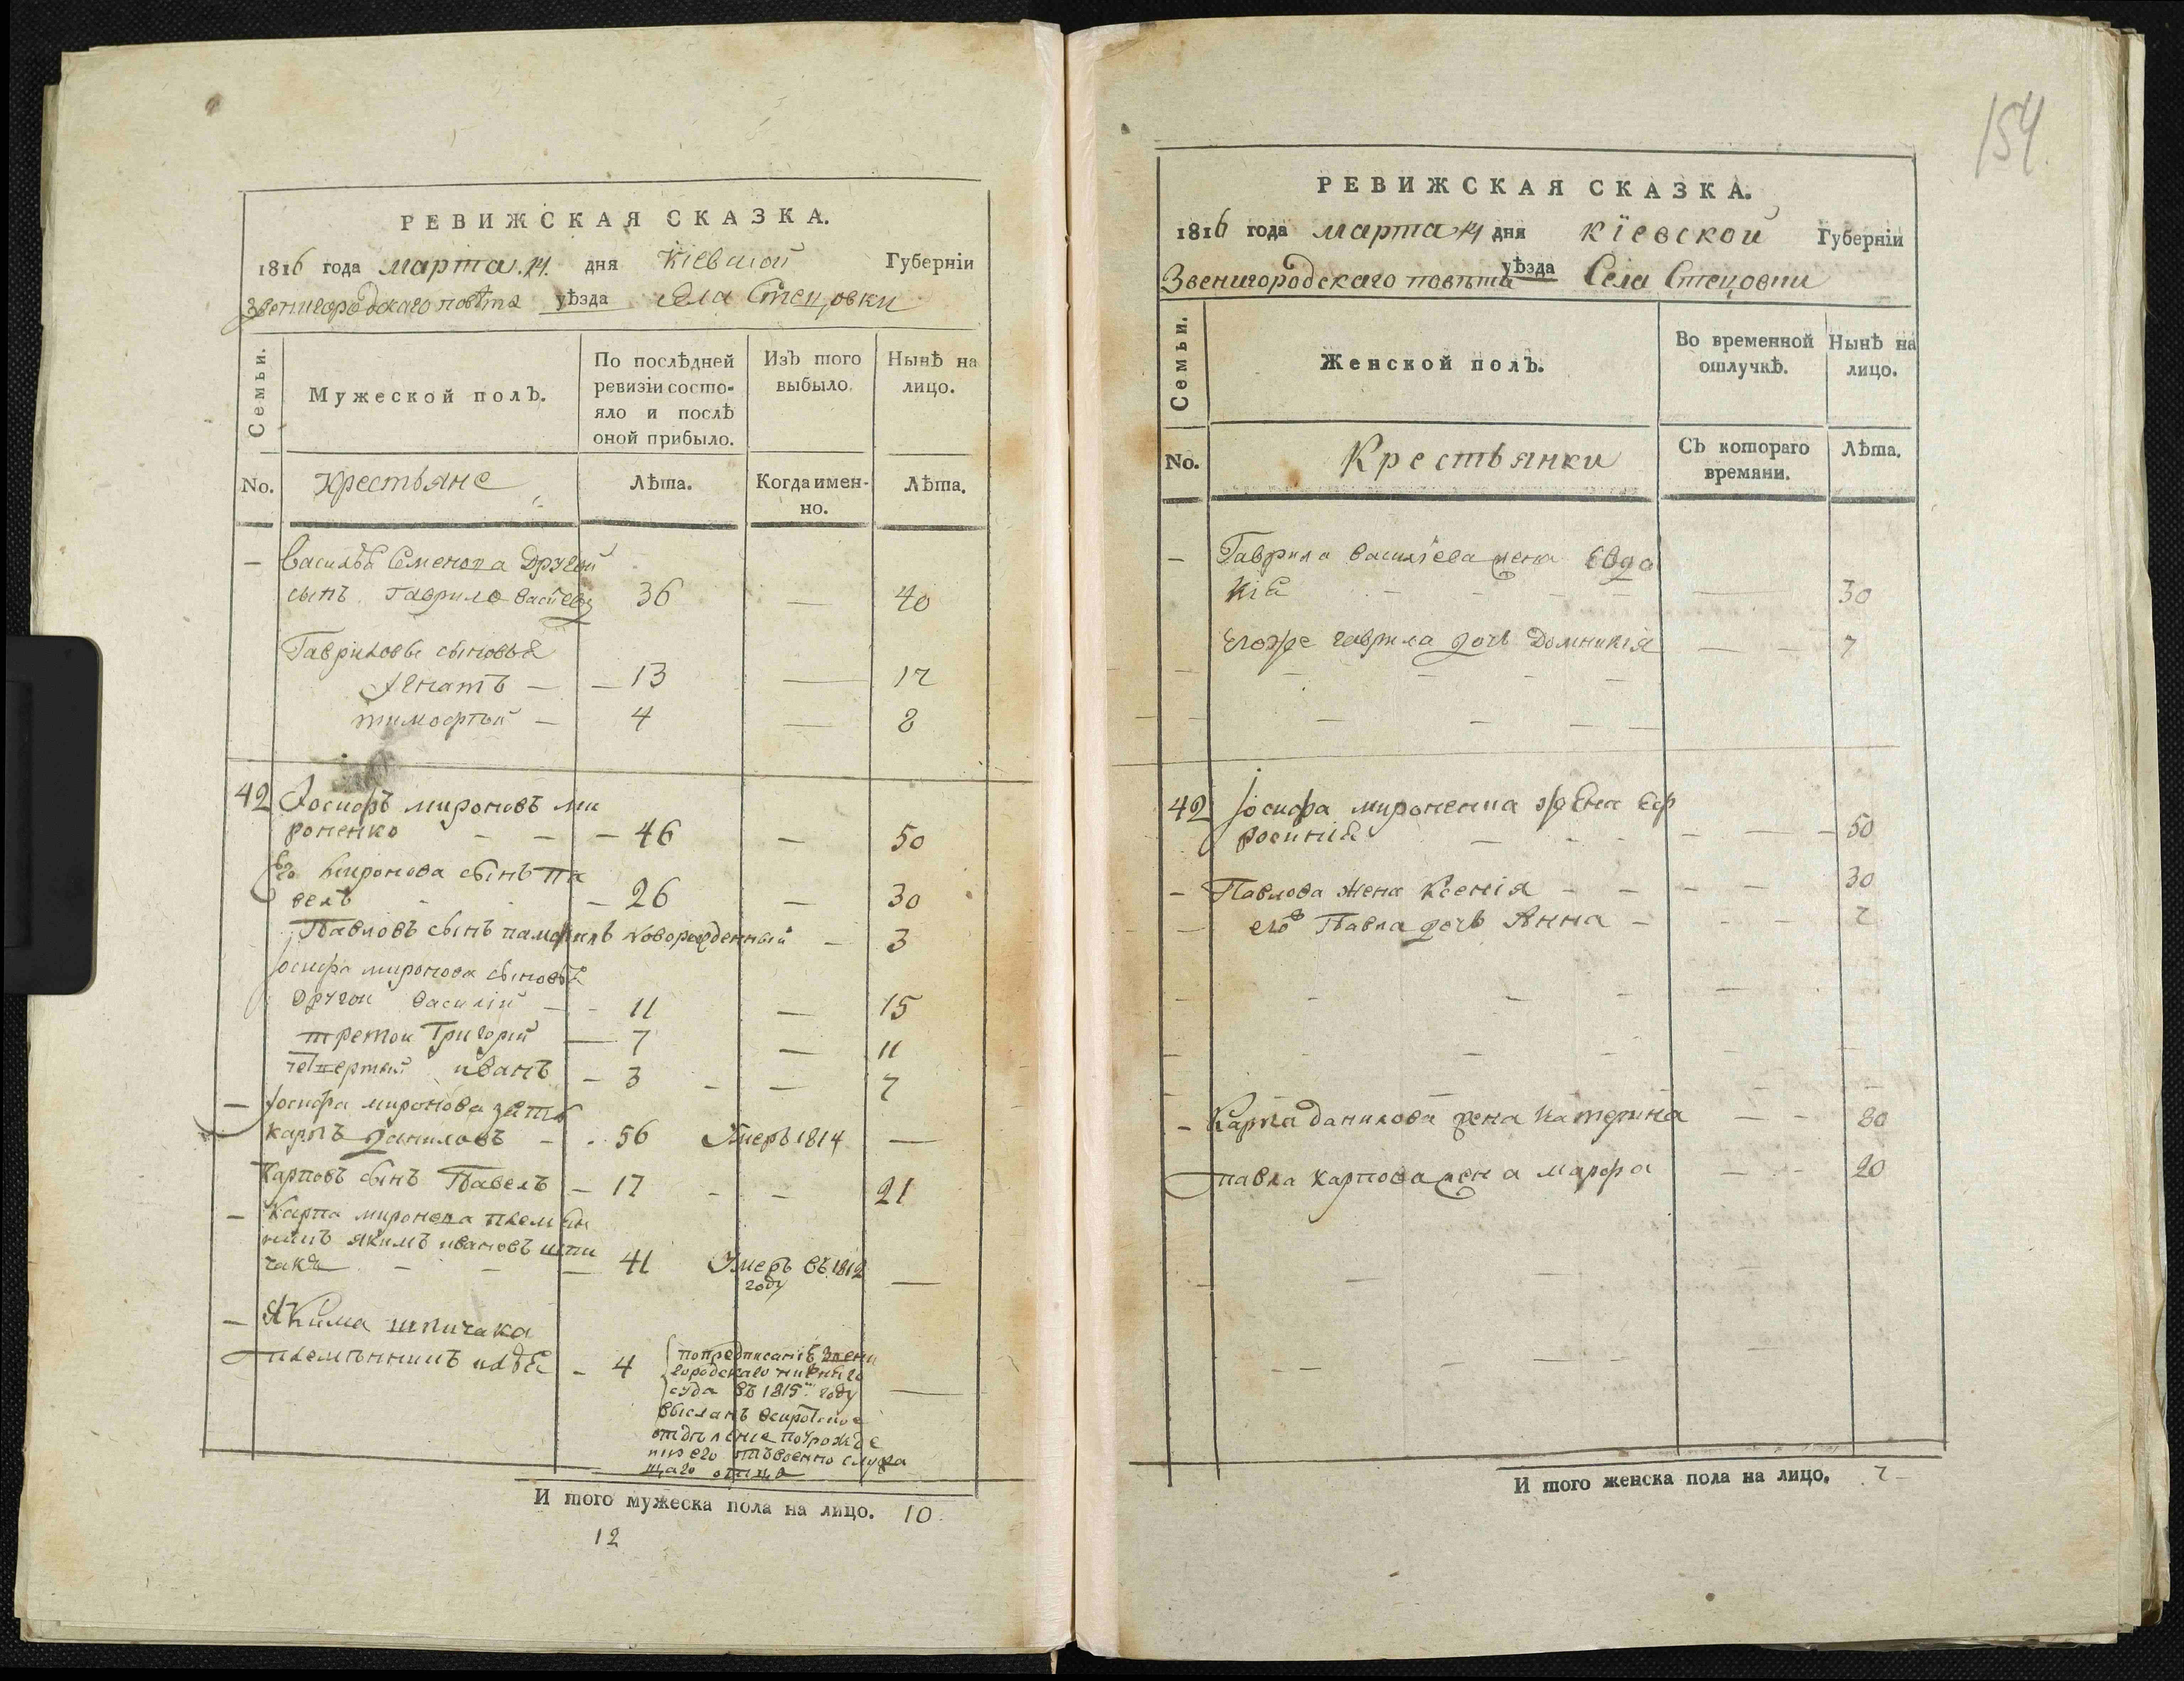 154.
РЕВИЖСКАЯ СКАЗКА.
1816 года марта 14 дня Кіевской Губерніи
Звенигородскаго повѣта уѣзда села Стецовки
Семьи.
Мужеской полъ.
По послѣдней ревизіи состо-
яло и послѣ
оной прибыло.
Изъ того выбыло.
Нынѣ на лицо.
No. Крестьяне Лѣта. Когда имен-
но. Лѣта.
— Василья Семенова Другой
сынъ Гаврило Васильевъ 36 — 40
Гавриловы сыновья
Игнатъ — — 13 — 17
тимофтей — 4 — 8
42 Іосифъ мироновъ ми
роненко — — — 46 — 50
Его Миронова сынъ па
велъ — 26 — 30
Павловъ сынъ памфилъ новорожденный — 3
Іосифа миронова сыновья
другой василій — - 11 — 15
третои Григорій — 7 — 11
четвертый иванъ — 3 - — 7
— Іосифа миронова зять
карпъ даниловъ - . 56 Умеръ 1814 —
Карповъ сынъ Павелъ — 17 - - 21
— Карпа миронова племян
никъ якимъ ивановъ шпи
чака — — — 41 Умеръ въ 1812
году —
— Якима шпичака
племѣнникъ илья - 4 по предписанію Звени
городскаго нижняго
суда въ 1815м году —
высланъ всиротское
отдѣление по урожде
нию его отъ военно служа
щаго отца
И того мужеска пола на лицо. 10.
12
РЕВИЖСКАЯ СКАЗКА.
1816 года марта 14 дня кіевской Губерніи
Звенигородскаго повѣта уѣзда Села Стецовки
Семьи.
Женской полъ.
Во временной
отлучкѣ.
Нынѣ на
лицо.
No. Крестьянки Съ котораго
времяни. Лѣта.
— Гаврила василіева жена Евдо
кія - - - — — 30
Егожъ гаврила дочь Домникія — — 7
42 Іосифа мироненка жена Еф
росинія — - - — — — 50
— Павлова жена Ксенія - — — — 30
его Павла дочь Анна — - — 7
- Карпа данилова жена катерина — - 80
павла карпова жена марфа — - 20
И того женска пола на лицо. 7 -